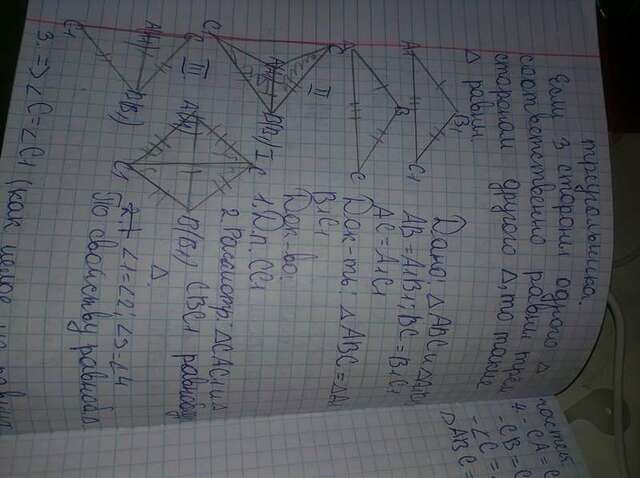 треугольника.
Если 3 стороны одного Δ
соответственно равны трём
сторонам другого Δ, то такие
Δ равны.
A1
B1
C1
A
B
C
Дано: ΔABC и
AB = A1B1, BC = B1C1
AC = A1C1
Док-ть: ΔABC = ΔA1
B1C1
Док-во:
1. Д.п. CC1
2 Рассмотр. ΔCAC1 и Δ
CBC1 равнобед
Δ.
∠1=∠2; ∠3=∠4
По свойству равнобед
3. => ∠C=∠C1 (как
C1
II
I
III
C1
частей
4 - CA = C
- CB = C
- ∠C =
ΔABC =